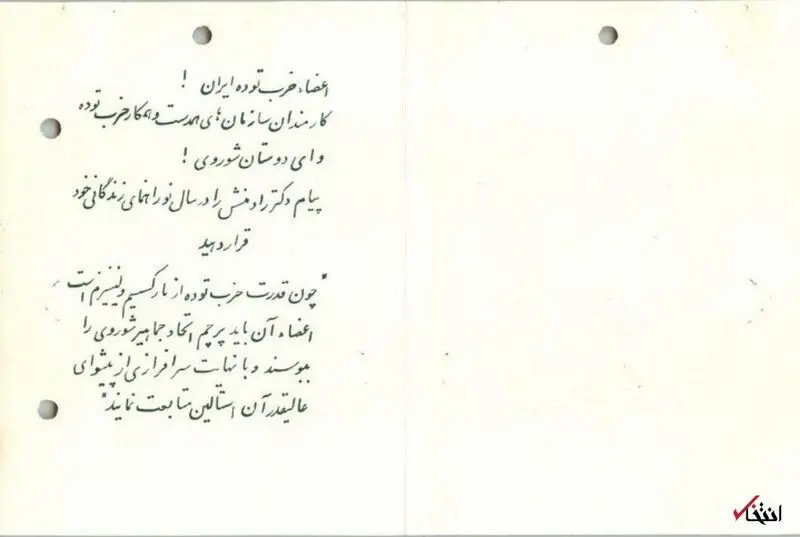 اعضاء حزب توده ایران !
کارمندان سازمان‌های همدست و همکار حزب توده
و ای دوستان شوروی !
پیام دکتر رادمنش را در سال نو راهنمای زندگانی خود
قرار دهید
"چون قدرت حزب توده از مارکسیسم ولنینیزم است
اعضاء آن باید پرچم اتحاد جماهیر شوروی را
ببوسند و با نهایت سرافرازی از پیشوای
عالیقدر آن استالین متابعت نمایند"
انتخاب